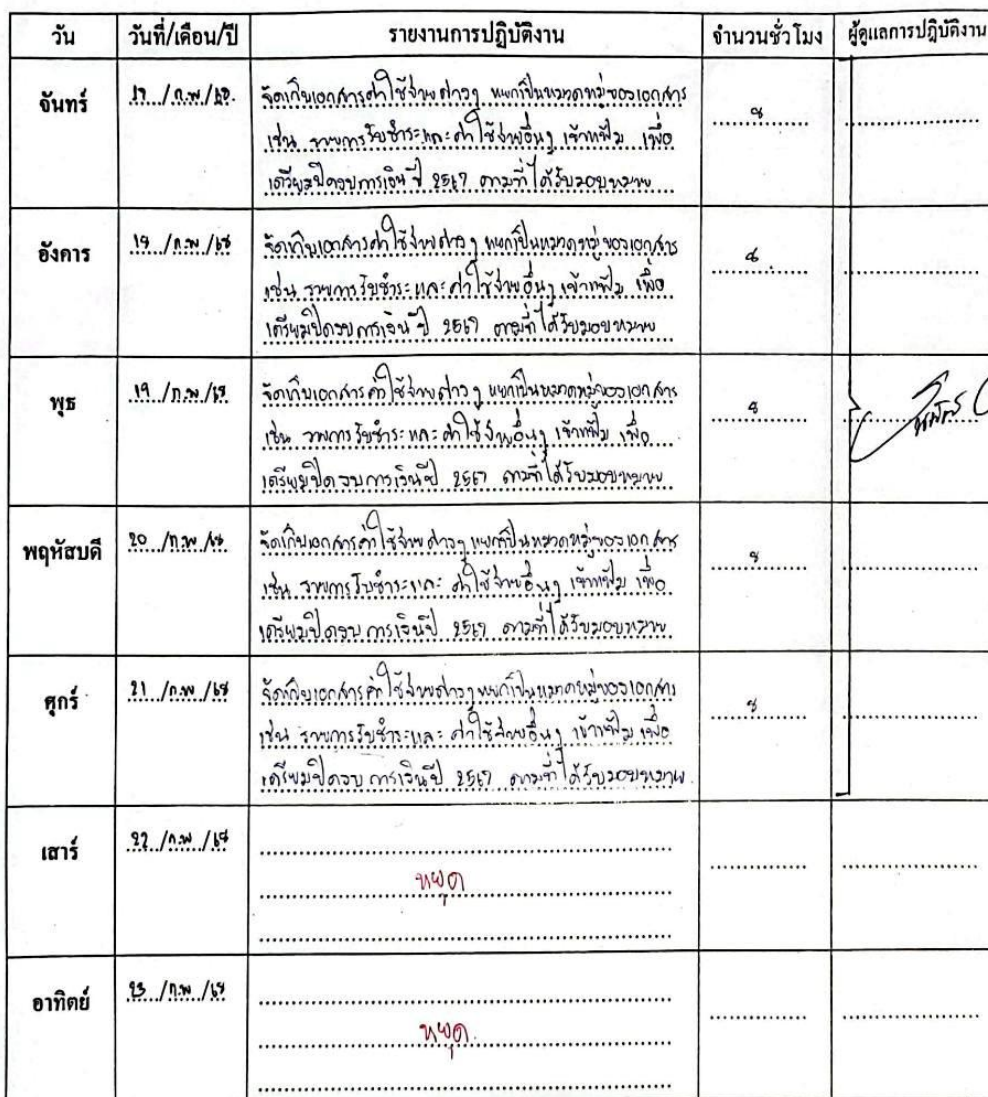 วัน วันที่/เดือน/ปี รายงานการปฏิบัติงาน จำนวนชั่วโมง ผู้ดูแลการปฏิบัติงาน
จันทร์ 17 /ก.พ/68 จัดเก็บเอกสารค่าใช้จ่ายต่างๆ แยกเป็นหมวดหมู่ของเอกสาร 8
เช่น รายการรับชำระและค่าใช้จ่ายอื่นๆ เข้าแฟ้ม เพื่อ
เตรียมปิดงบการเงินปี 2567 ตามที่ได้รับมอบหมาย
อังคาร 18 /ก.พ/68 จัดเก็บเอกสารค่าใช้จ่ายต่างๆ แยกเป็นหมวดหมู่ของเอกสาร 8
เช่น รายการรับชำระและค่าใช้จ่ายอื่นๆ เข้าแฟ้ม เพื่อ
เตรียมปิดงบการเงินปี 2567 ตามที่ได้รับมอบหมาย
พุธ 19 /ก.พ/68 จัดเก็บเอกสารค่าใช้จ่ายต่างๆ แยกเป็นหมวดหมู่ของเอกสาร 8
เช่น รายการรับชำระและค่าใช้จ่ายอื่นๆ เข้าแฟ้ม เพื่อ
เตรียมปิดงบการเงินปี 2567 ตามที่ได้รับมอบหมาย
พฤหัสบดี 20 /ก.พ/68 จัดเก็บเอกสารค่าใช้จ่ายต่างๆ แยกเป็นหมวดหมู่ของเอกสาร 8
เช่น รายการรับชำระและ ค่าใช้จ่ายอื่นๆ เข้าแฟ้ม เพื่อ
เตรียมปิดงบการเงินปี 2567 ตามที่ได้รับมอบหมาย
ศุกร์ 21 /ก.พ/68 จัดเก็บเอกสารค่าใช้จ่ายต่างๆ แยกเป็นหมวดหมู่ของเอกสาร 8
เช่น รายการรับชำระและ ค่าใช้จ่ายอื่นๆ เข้าแฟ้ม เพื่อ
เตรียมปิดงบการเงินปี 2567 ตามที่ได้รับมอบหมาย
เสาร์ 22 /ก.พ/68
หยุด
อาทิตย์ 23 /ก.พ/68
หยุด